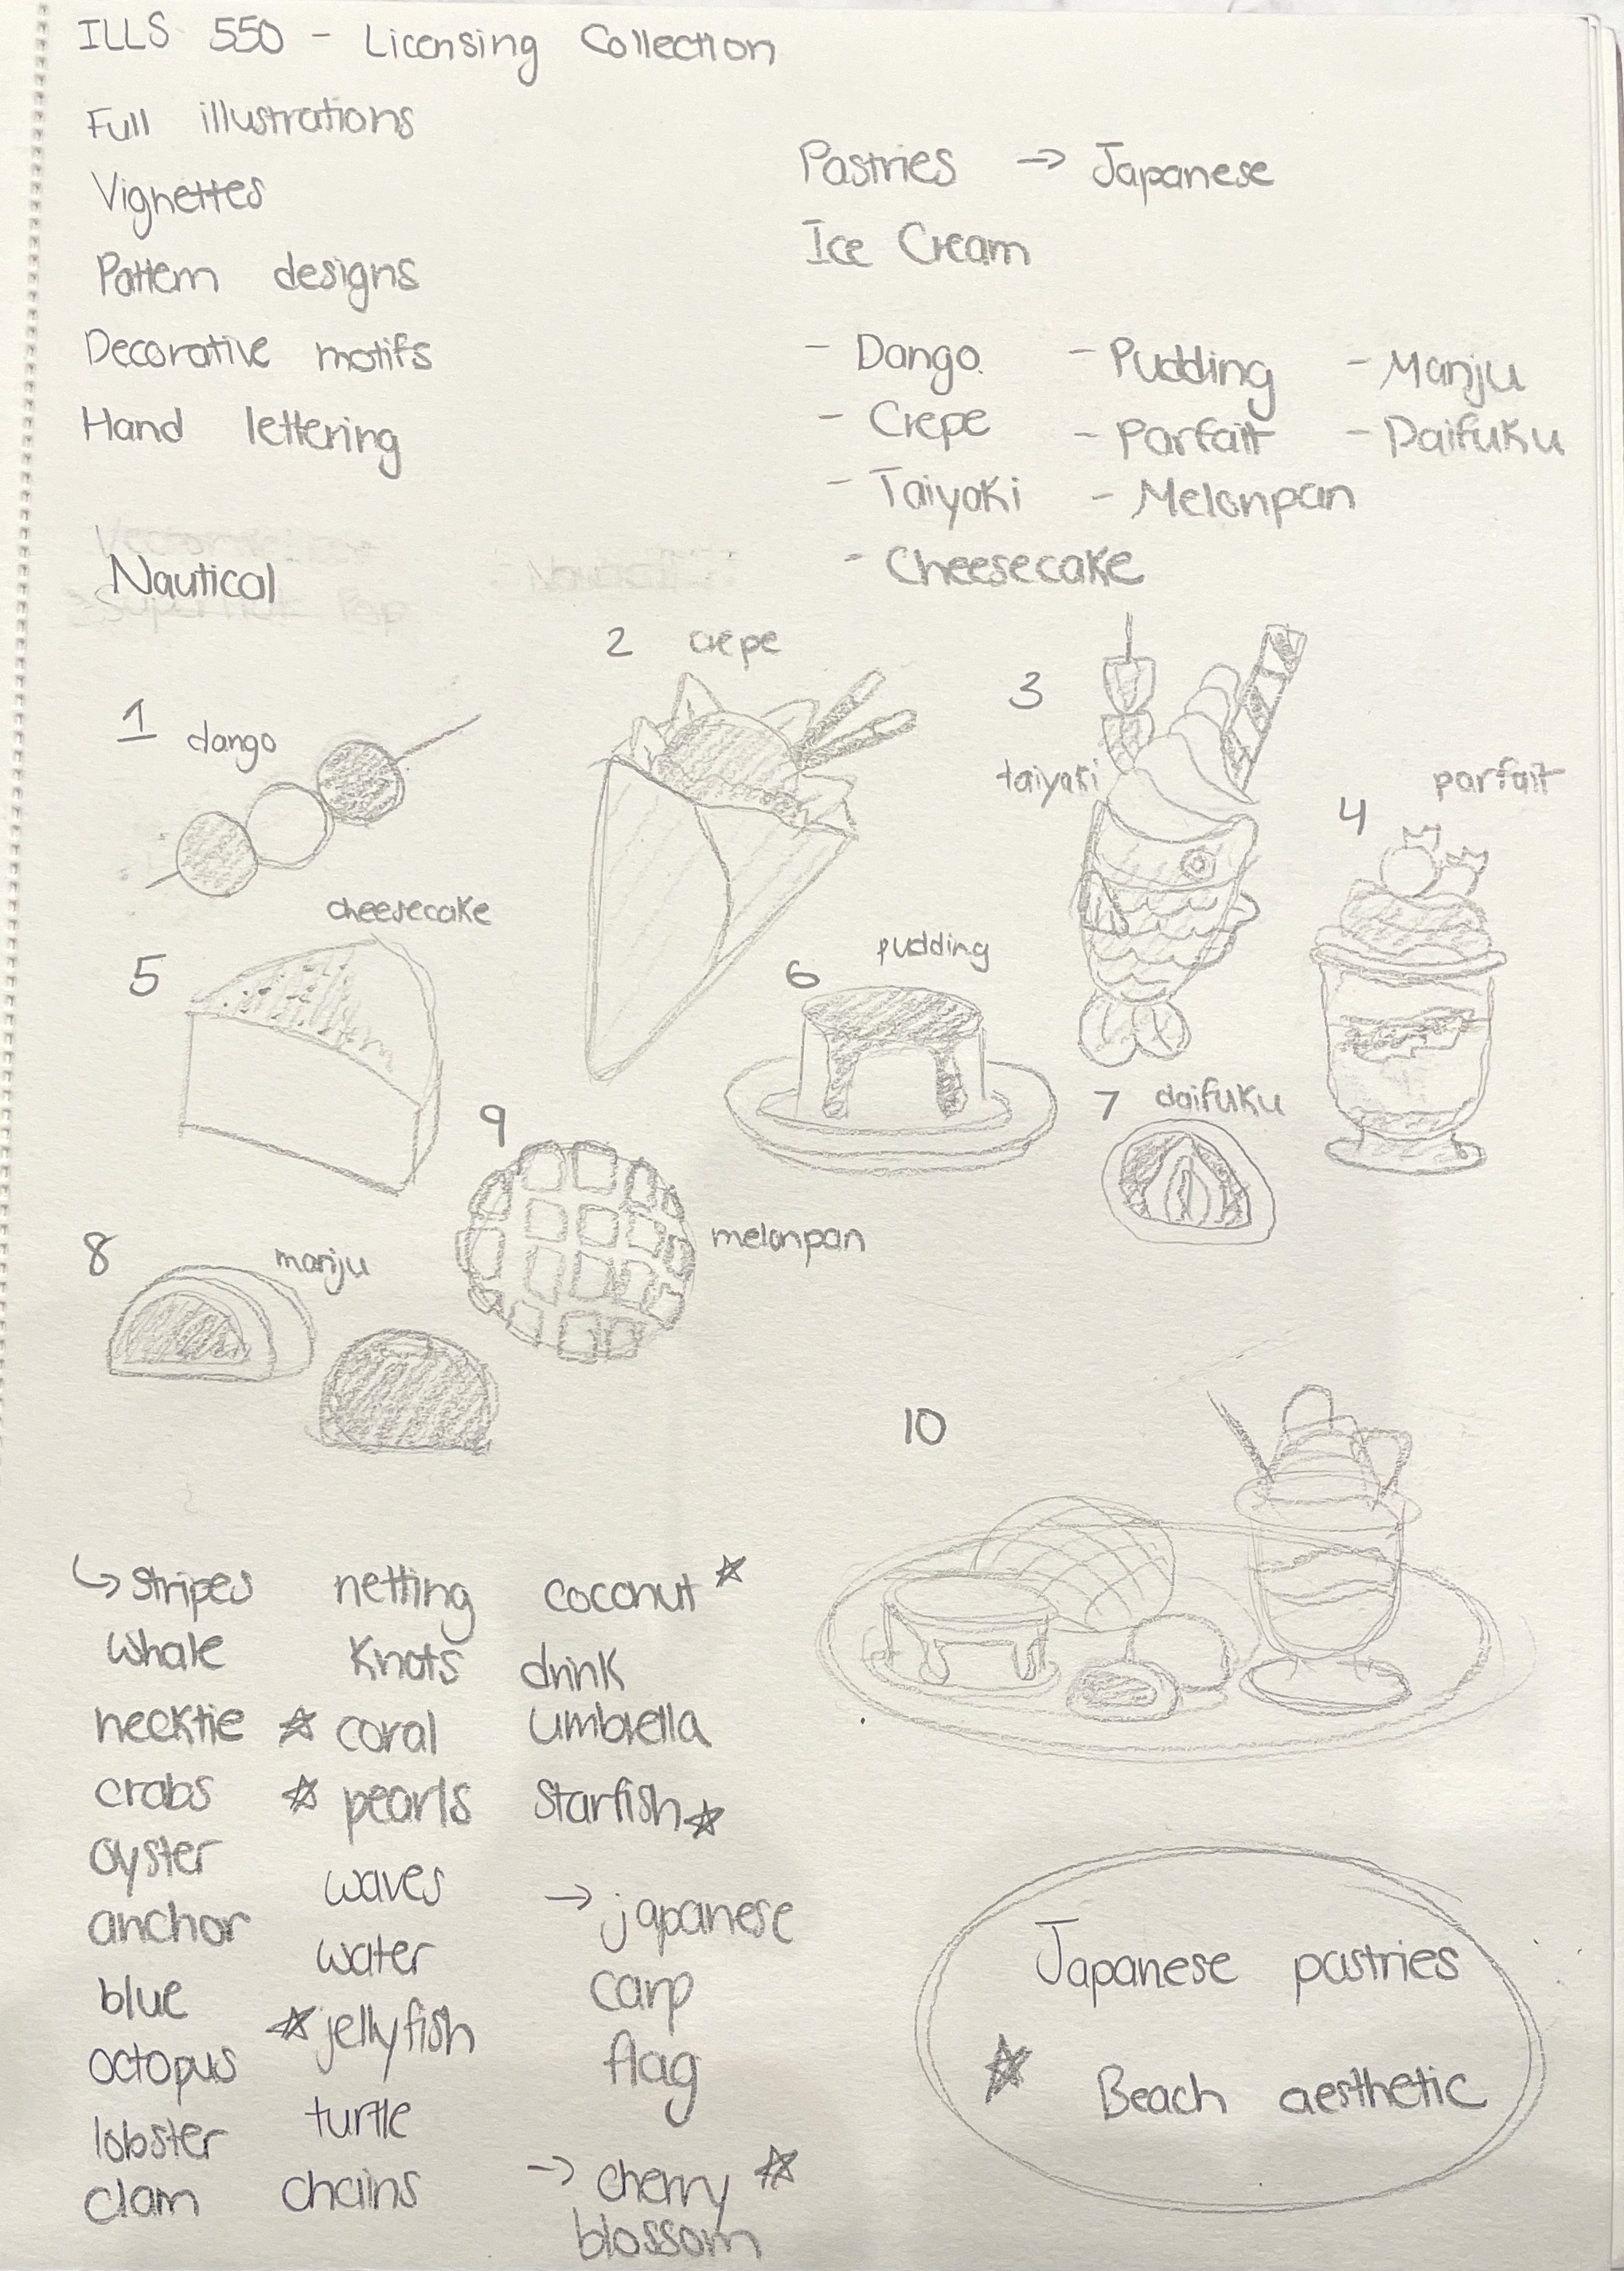 ILLS 550 - Licensing Collection
Full illustrations
Vignettes
Pattern designs
Decorative motifs
Hand lettering
Pastries → Japanese
Ice Cream
- Dango - Pudding - Manju
- Crepe - Parfait - Daifuku
- Taiyaki - Melonpan
- Cheesecake
Nautical
1 dango
2 crepe
3
taiyaki
4
parfait
5
cheesecake
6
pudding
7 daifuku
8
manju
9
melonpan
10
↳ stripes
whale
necktie
crabs
oyster
anchor
blue
octopus
lobster
clam
netting
knots
☆ coral
☆ pearls
waves
water
☆ jellyfish
turtle
chains
coconut ☆
drink
umbrella
starfish ☆
→ japanese
carp
flag
→ cherry ☆
blossom
Japanese pastries
☆ Beach aesthetic